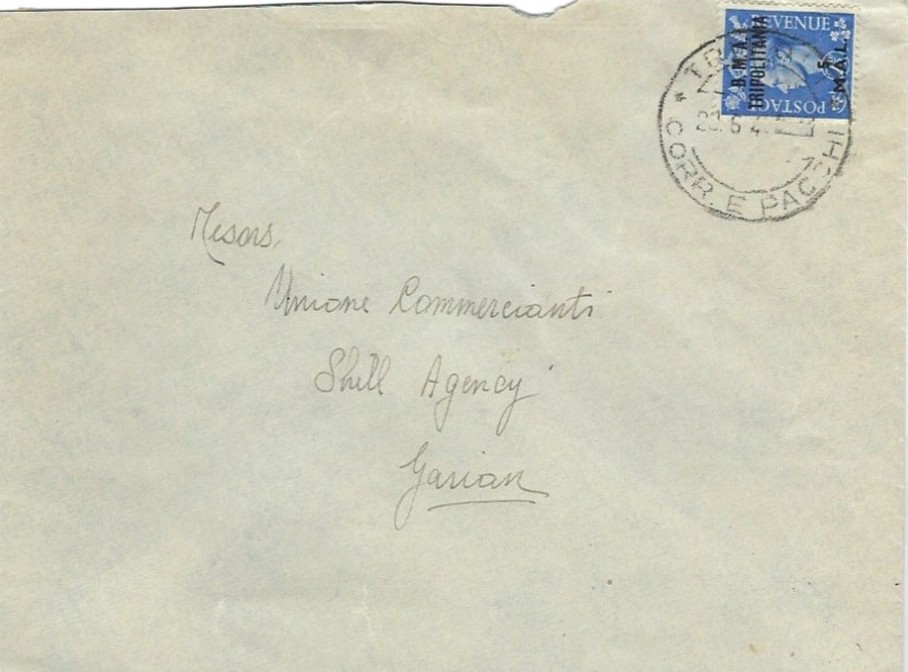 REVENUE
B.M.A.
TRIPOLITANIA
5
M.A.L.
POSTAGE
CORR. E PACCHI
Messrs,
Unione Commercianti
Shell Agency
Garian